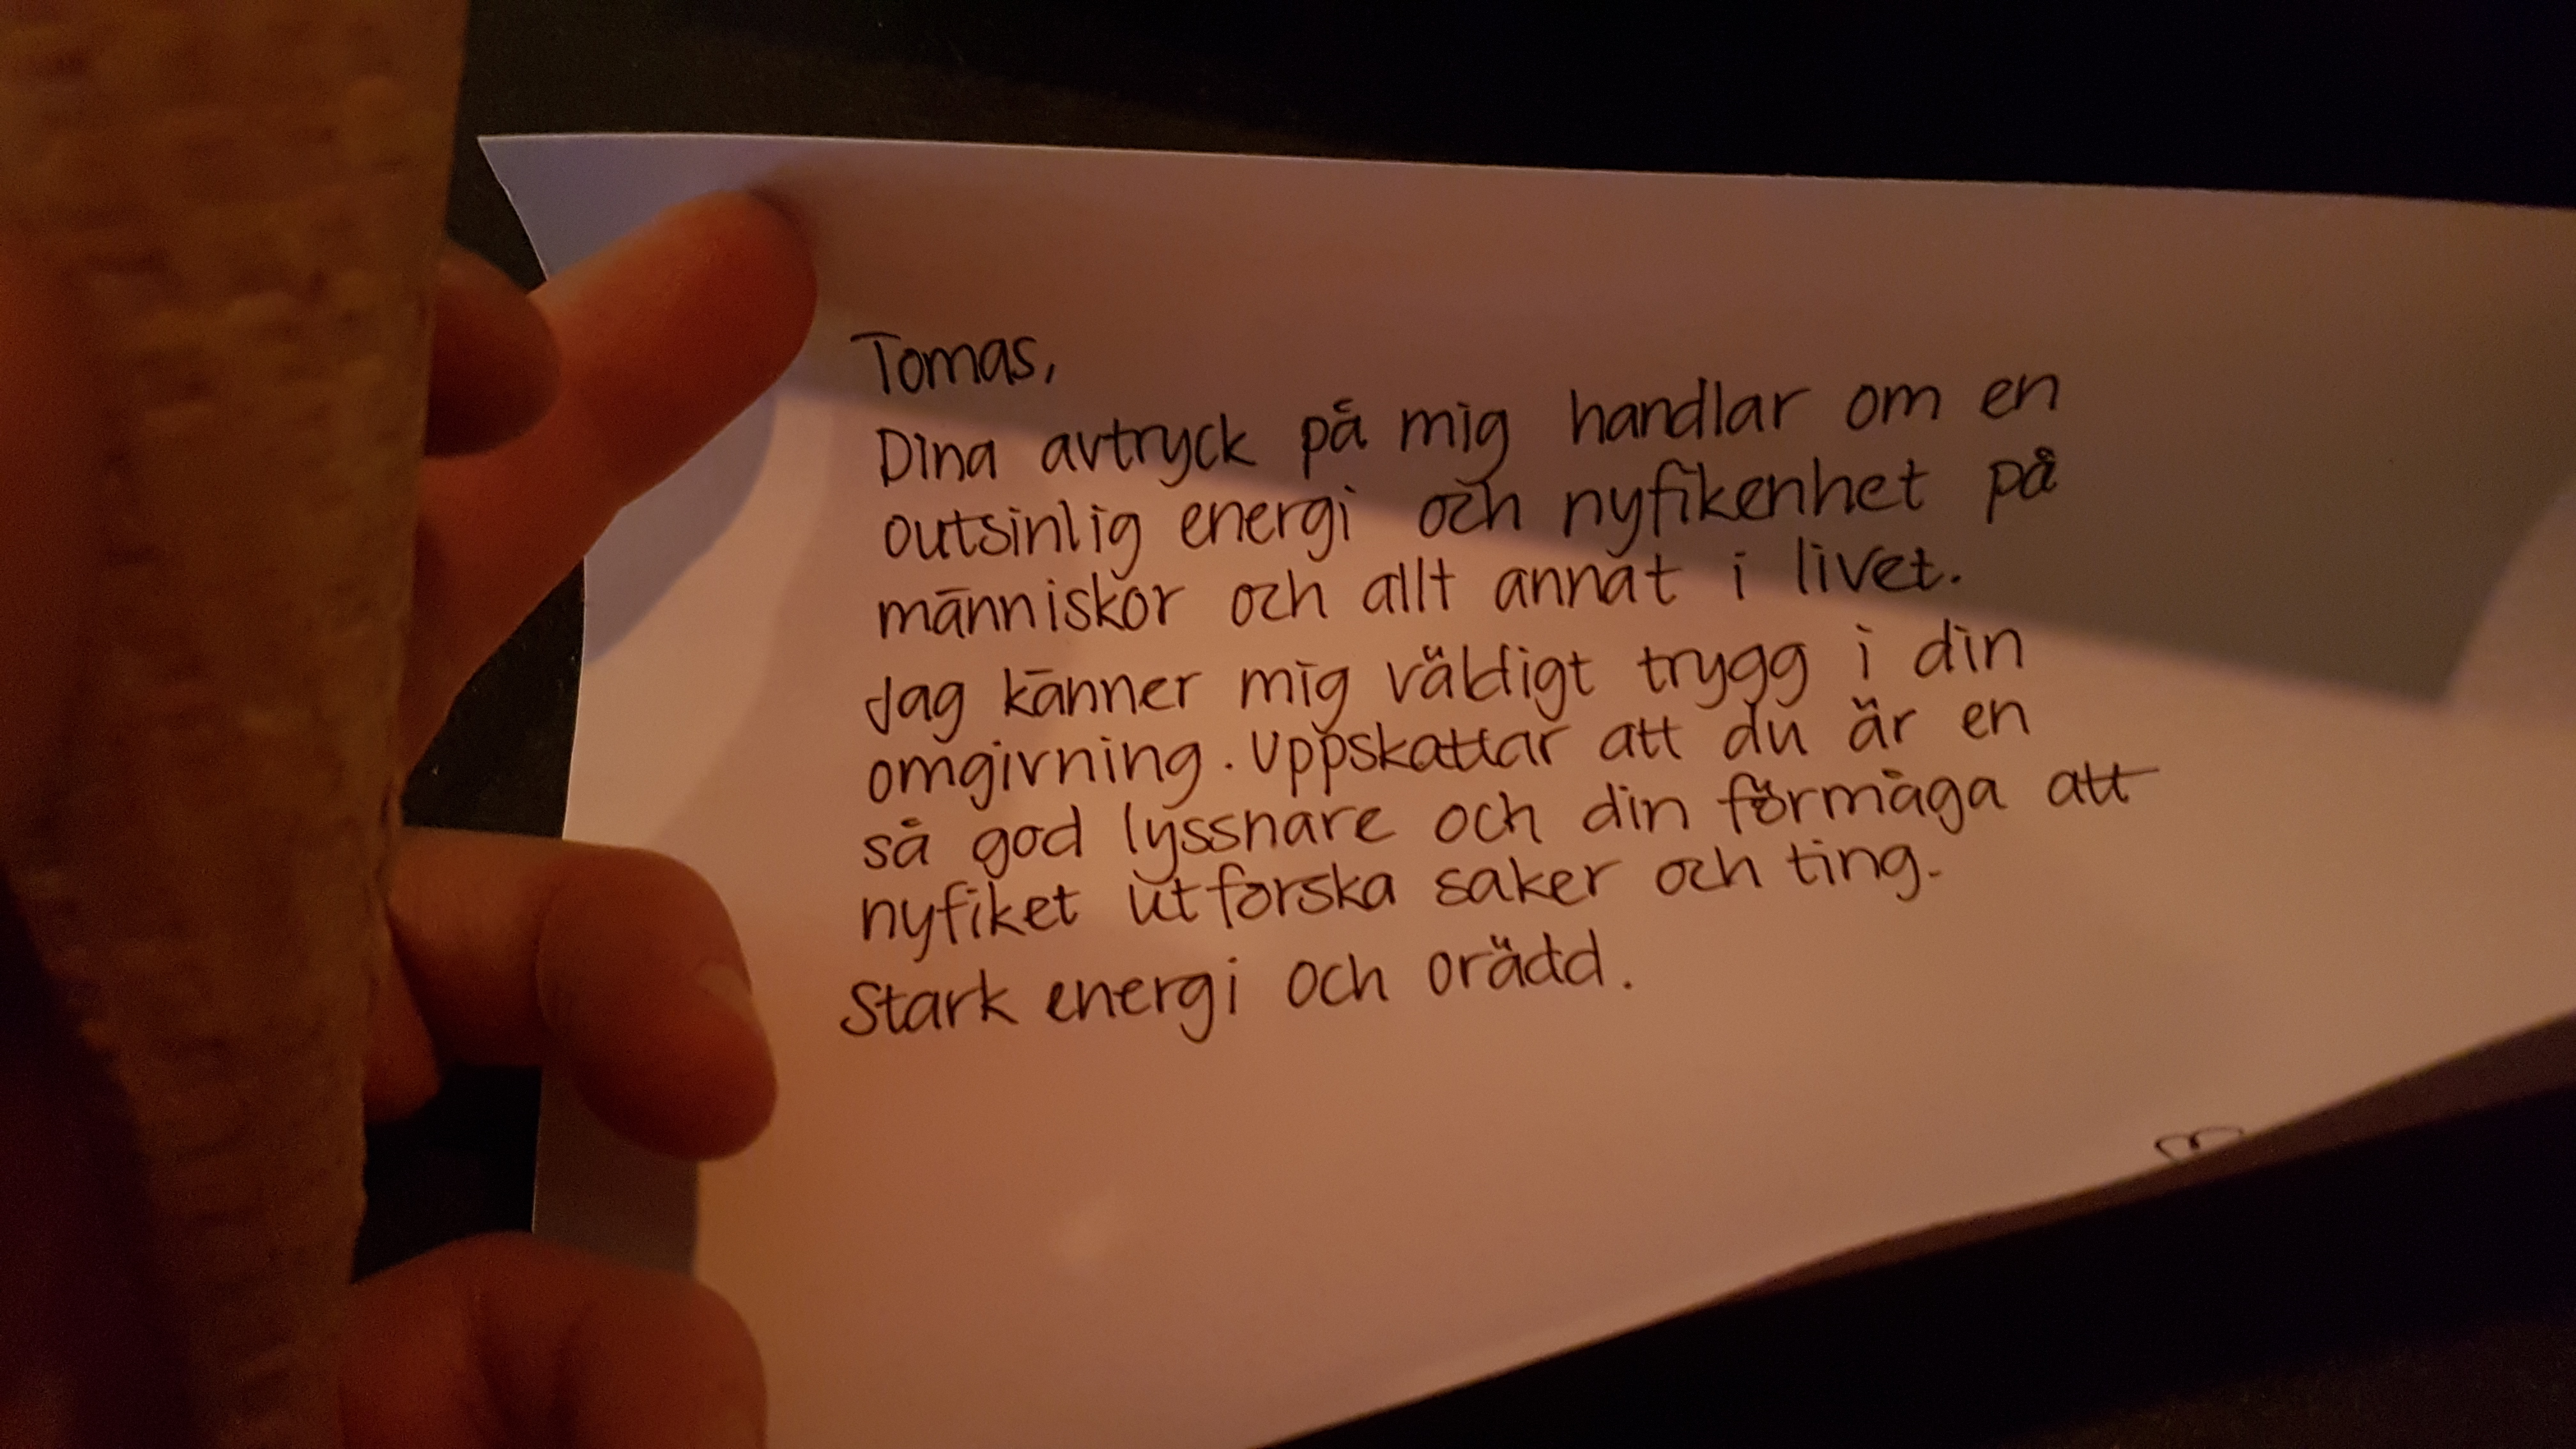 Tomas,
Dina avtryck på mig handlar om en
outsinlig energi och nyfikenhet på
människor och allt annat i livet.
Jag känner mig väldigt trygg i din
omgivning. Uppskattar att du är en
så god lyssnare och din förmåga att
nyfiket utforska saker och ting.
Stark energi och orädd.